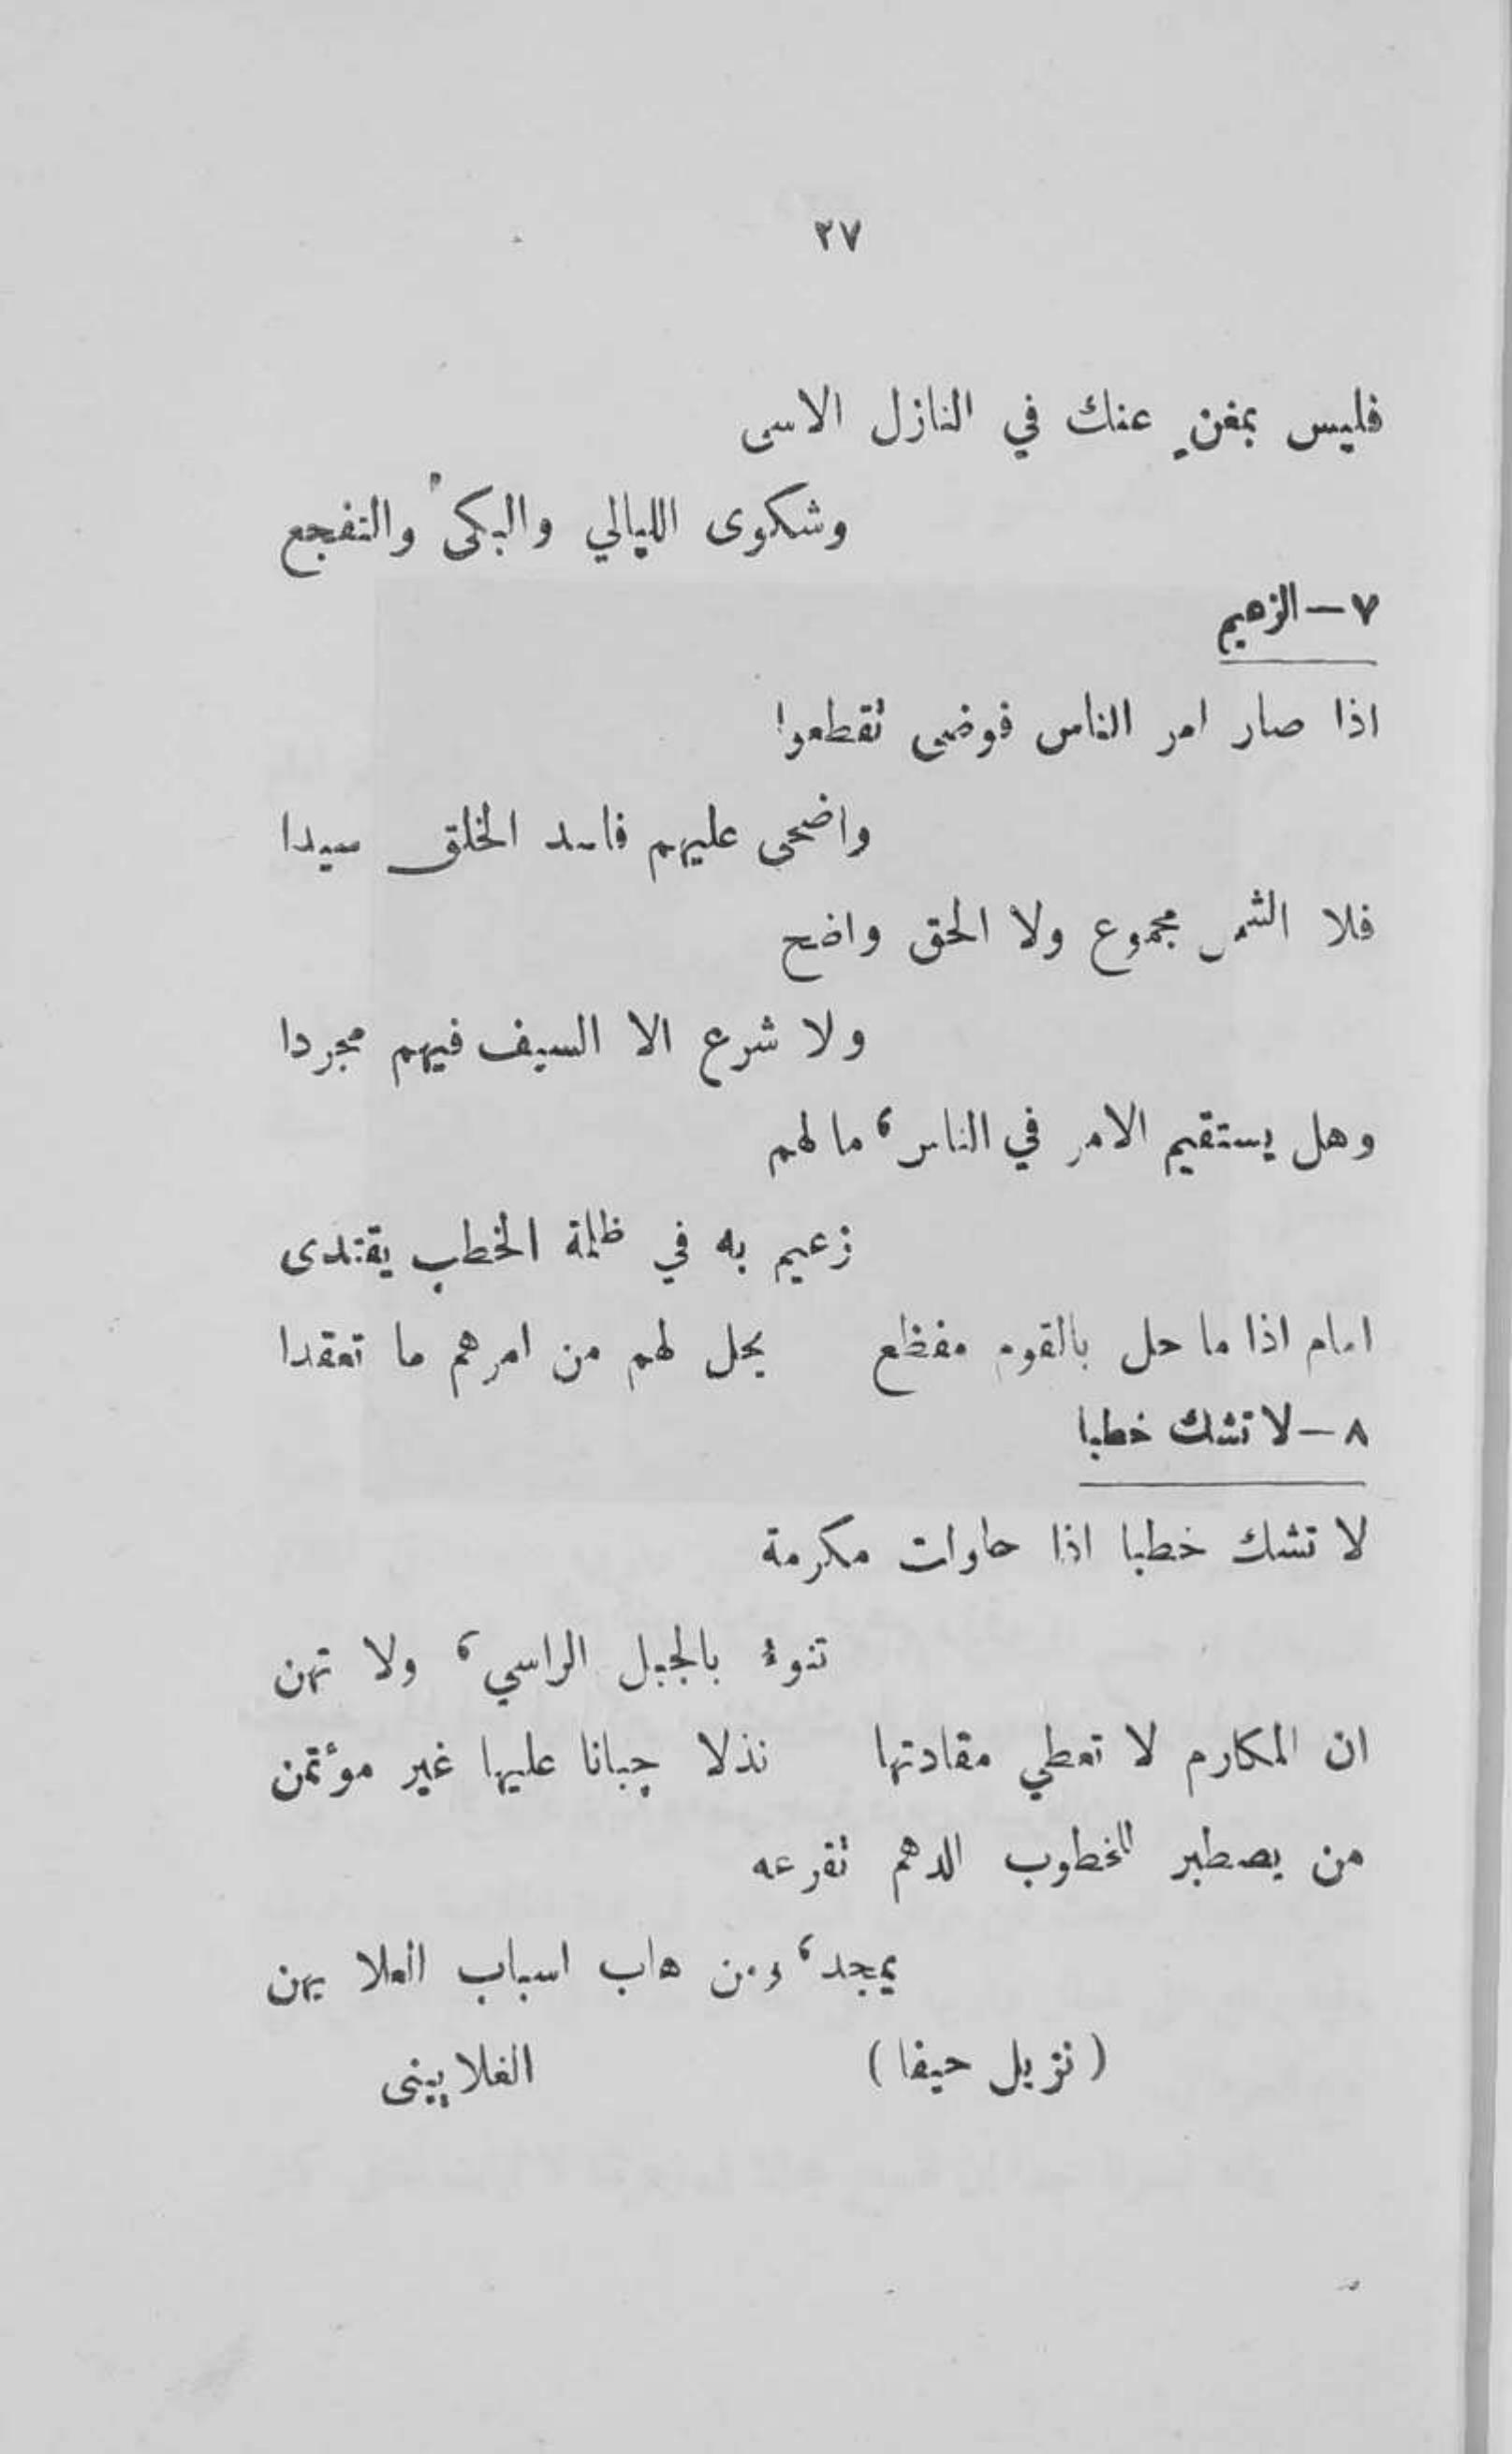 ٢٧
فليس بمغنٍ عنك في النازل الاسى
وشكوى الليالي والبكى والتفجع
٧ – الزعيم
اذا صار امر الناس فوضى تقطعوا
واضحى عليهم فاسد الخلق سيدا
فلا الشمل مجموع ولا الحق واضح
ولا شرع الا السيف فيهم مجردا
وهل يستقيم الامر في الناس، ما لهم
زعيم به في ظلمة الخطب يقتدى
امام اذا ما حل بالقوم مفظع يحل لهم من امرهم ما تعقدا
٨ – لا تشك خطبا
لا تشك خطبا اذا حاولت مكرمة
تنوءُ بالجبل الراسي، ولا تهن
ان المكارم لا تعطي مقادتها نذلا جبانا عليها غير مؤتمن
من يصطبر للخطوب الدهم تقرعه
يمجد، ومن هاب اسباب العلا يهن
(نزيل حيفا) الغلاييني